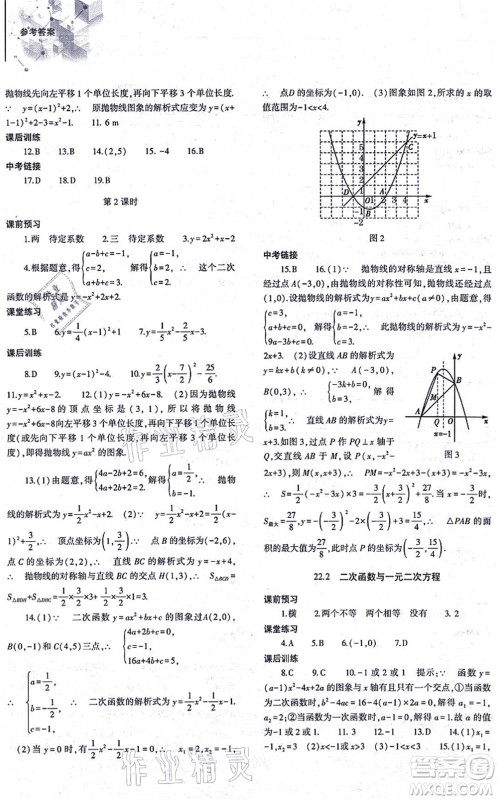 参考答案
抛物线先向左平移1个单位长度,再向下平移3个单位长度.
∵ y=(x-1)²+2,∴ 原抛物线图象的解析式应变为 y=(x+
1-1)²+2-3=x²-1. 11. 6 m
课后训练
12.B 13.B 14.(2,5) 15.-4 16.B
中考链接
17.D 18.D 19.B
第2课时
课前预习
1.两 待定系数 2.三 待定系数 3.y=2x²+x-2
4.根据题意,得{a-b+c=-1, c=-3, a+b+c=-1. 解得 ∴ 这个二次
函数的解析式是
课堂练习
5.B 6.y=1/4(x-1)²+1 7.y=1/2x²-5/2x
课后训练
8.D 9.y=(x-1)²-4. 10.y=2(x-7/2)²-25/6
11.y=x²-x+2. 12.(1)y=-x²+6x-8. (2)因为抛物线
y=-x²+6x-8 的顶点坐标是(3,1),所以将抛物线
y=-x²+6x-8向左平移3个单位长度,再向下平移1个单位长
度(或先向下平移1个单位长度,再向左平移3个单位长度),
即可得到抛物线 y=ax² 的图象.
13.(1)由题意,得{4a-2b+2=6, 4a+2b+2=2. 解得{a=1/2, b=-1. ∴ 抛物
线的解析式为 y=1/2x²-x+2. (2)∵ y=1/2x²-x+2=
1/2(x-1)²+3/2,∴ 顶点坐标为(1,3/2). ∵ 点B的坐标为(4,6),
点C的坐标为(2,2),∴ 直线BC的解析式为 y=-x+4,
∴ 抛物线的对称轴与直线BC的交点H(1,3),∴ S△BCD=
S△BDH+S△CDH=1/2×3/2×3+1/2×3/2×1=3.
14.(1)∵ 二次函数 y=ax²+bx+c 的图象过 A(2,0),
B(0,-1)和C(4,5)三点,∴{4a+2b+c=0, c=-1, 16a+4b+c=5.
∴{a=1/2, b=-1/2, c=-1. ∴ 二次函数的解析式为 y=1/2x²-1/2x-1.
(2)当 y=0 时,有1/2x²-1/2x-1=0,∴ x₁=2,x₂=-1,
∴ 点D的坐标为(-1,0). (3)图象如图2,所求的x的取
值范围为-1<x<4.
y
y=x+1
C
D
O
A
B
x
图2
中考链接
15.B 16.(1)∵ 抛物线的对称轴是直线x=-1,且
经过点A(-3,0),由抛物线的对称性可知,抛物线还经过点
(1,0).设抛物线的解析式为y=ax²+bx+c(a≠0),由题意,得
{c=3, a+b+c=0, 9a-3b+c=0. 解得{a=-1, b=-2, c=3. ∴ 此抛物线的解析式为 y=-x²-
2x+3. (2)设直线AB的解析式为
y=kx+b(k≠0). ∵ A(-3,0),
B(0,3),∴{-3k+b=0, b=3. 解得
{k=1, b=3. ∴ 直线AB的解析式为 y=
x+3.如图3,作PQ⊥x轴于点Q,
交直线AB于点M.设P(x,-x²-
2x+3),则M(x,x+3),∴ PM=-x²-2x+3-(x+3)=-x²-3x,
∴ S=1/2(-x²-3x)×3=-3/2(x+3/2)²+27/8. 当 x=-3/2时,
S最大=27/8,y=-(-3/2)²-2×(-3/2)+3=15/4,∴ △PAB的面
积的最大值为27/8,此时点P的坐标为(-3/2,15/4).
P
B
M
A
Q
O
x=-1
图3
22.2 二次函数与一元二次方程
课前预习
1.横 2.两个不等 两个相等 没有 3.2
课堂练习
4.A 5.B 6.(-1,0) 7.D
课后训练
8.C 9.C 10.-1或2或1 提示:∵ 函数 y=
(a-1)x²-4x+2a 的图象与x轴有且只有一个交点,①当函数为
二次函数时,b²-4ac=16-4(a-1)×2a=0,解得 a₁=-1,
a₂=2;②当函数为一次函数时,a-1=0,解得 a=1. 故a的值
为-1或2或1. 11.3 12.-1<x<3 13.(1)x₁=
-1,x₂=3. (2)x<-1或x>3. 14.k<4 15.(1)x₁=1,
作业精灵
答案圈
MXQE.COM